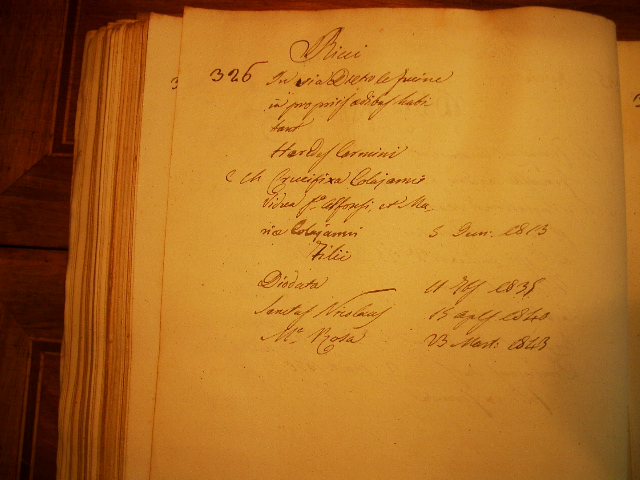 Ricci
326 In via Dietro le fucine
in propriis ædibus habi
tant
Hæredes Carmini
C Ch Crucifixa Colajanni
vidua f.ª Alfonsi, et Ma
riæ Colajanni 3 Jun: 1813
Filii
Diodata 1838
Sanctus Nicolaus 15 aplis 1840
M.ª Rosa 23 Mart: 1843